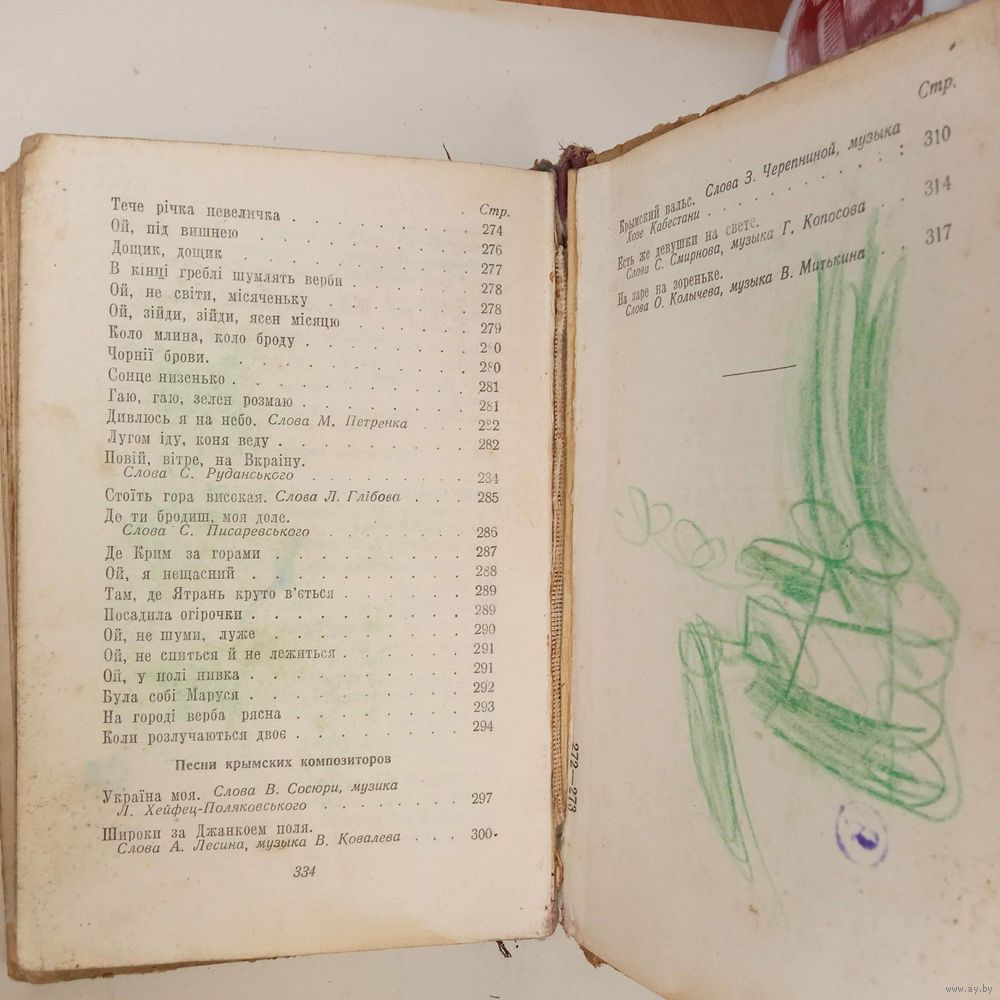 Стр.
Тече річка невеличка . . . . . . . . . 274
Ой, під вишнею . . . . . . . . . . 276
Дощик, дощик . . . . . . . . . . 277
В кінці греблі шумлять верби . . . . . . 278
Ой, не світи, місяченьку . . . . . . . 278
Ой, зійди, зійди, ясен місяцю . . . . . . 279
Коло млина, коло броду . . . . . . . . 280
Чорнії брови. . . . . . . . . . . 280
Сонце низенько . . . . . . . . . . 281
Гаю, гаю, зелен розмаю . . . . . . . . 281
Дивлюсь я на небо. Слова М. Петренка . . . 282
Лугом іду, коня веду . . . . . . . . . 282
Повій, вітре, на Вкраїну.
Слова С. Руданського . . . . . . . 284
Стоїть гора високая. Слова Л. Глібова . . . 285
Де ти бродиш, моя доле.
Слова С. Писаревського . . . . . . . 286
Де Крим за горами . . . . . . . . . 287
Ой, я нещасний . . . . . . . . . . 288
Там, де Ятрань круто в'ється . . . . . . 289
Посадила огірочки . . . . . . . . . . 289
Ой, не шуми, луже . . . . . . . . . 290
Ой, не спиться й не лежиться . . . . . . 291
Ой, у полі нивка . . . . . . . . . . 291
Була собі Маруся . . . . . . . . . . 292
На городі верба рясна . . . . . . . . 293
Коли розлучаються двоє . . . . . . . . 294
Песни крымских композиторов
Україна моя. Слова В. Сосюри, музика
Л. Хейфец-Поляковського . . . . . . 297
Широки за Джанкоем поля.
Слова А. Лесина, музыка В. Ковалева . . . 300
334
Стр.
Крымский вальс. Слова З. Черепниной, музыка
Хозе Кабестани . . . . . . . . . 310
Есть же девушки на свете.
Слова С. Смирнова, музыка Г. Копосова . . 314
На заре на зореньке.
Слова О. Колычева, музыка В. Митькина . . 317
272—273
www.ay.by